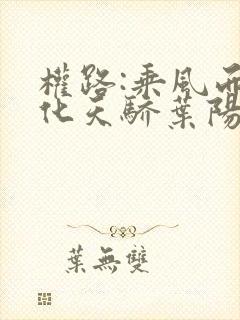 權路:乘風而
化天驕葉陽
葉無雙